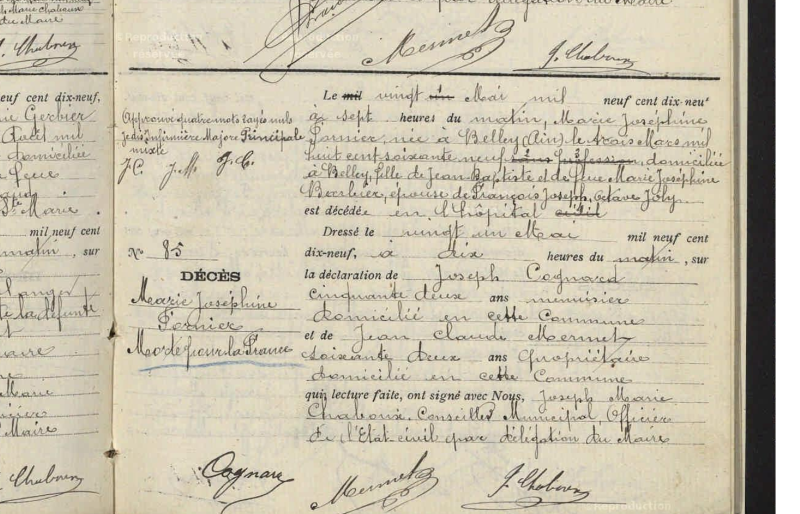 Marie Chaboux
du Maire
J. Chaboux
par délégation du Maire
Mermet
J. Chaboux
neuf cent dix-neuf,
Marie Gerbier
Août mil
domiciliée
feue
Ste Marie
mil neuf cent
matin, sur
la défunte
Maire
J. Chaboux
Approuvé quatre mots rayés nuls
je dis infirmière Majore Principale
mixte
J.C. J.M. J.C.
Le mil vingt un Mai mil neuf cent dix-neuf
à sept heures du matin, Marie Joséphine
Fornier, née à Belley (Ain) le trois Mars mil
huit cent soixante neuf sans profession, domiciliée
à Belley, fille de Jean-Baptiste et de feue Marie Joséphine
Barbier, épouse de François Joseph, Octave Joly
est décédée en l'hôpital civil
Dressé le vingt un Mai mil neuf cent
dix-neuf, à dix heures du matin, sur
la déclaration de Joseph Cognard
cinquante deux ans menuisier
domicilié en cette Commune
et de Jean Claude Mermet
soixante deux ans propriétaire
domicilié en cette Commune
qui, lecture faite, ont signé avec Nous, Joseph Marie
Chaboux, Conseiller Municipal Officier
de l'Etat-civil par délégation du Maire
No 85
DÉCÈS
Marie Joséphine
Fornier
Morte pour la France
Cognard
Mermet
J. Chaboux